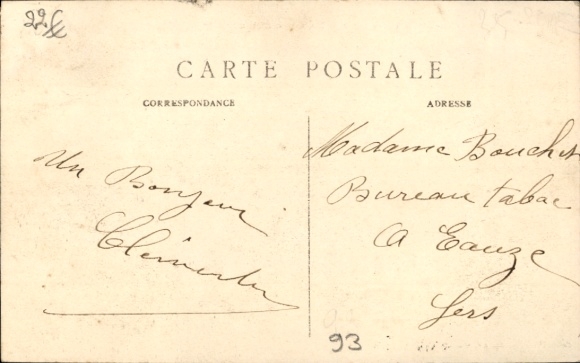 CARTE POSTALE
CORRESPONDANCE
ADRESSE
Un Bonjour
Madame Bouchet
Bureau tabac
A Eauze
Gers
93